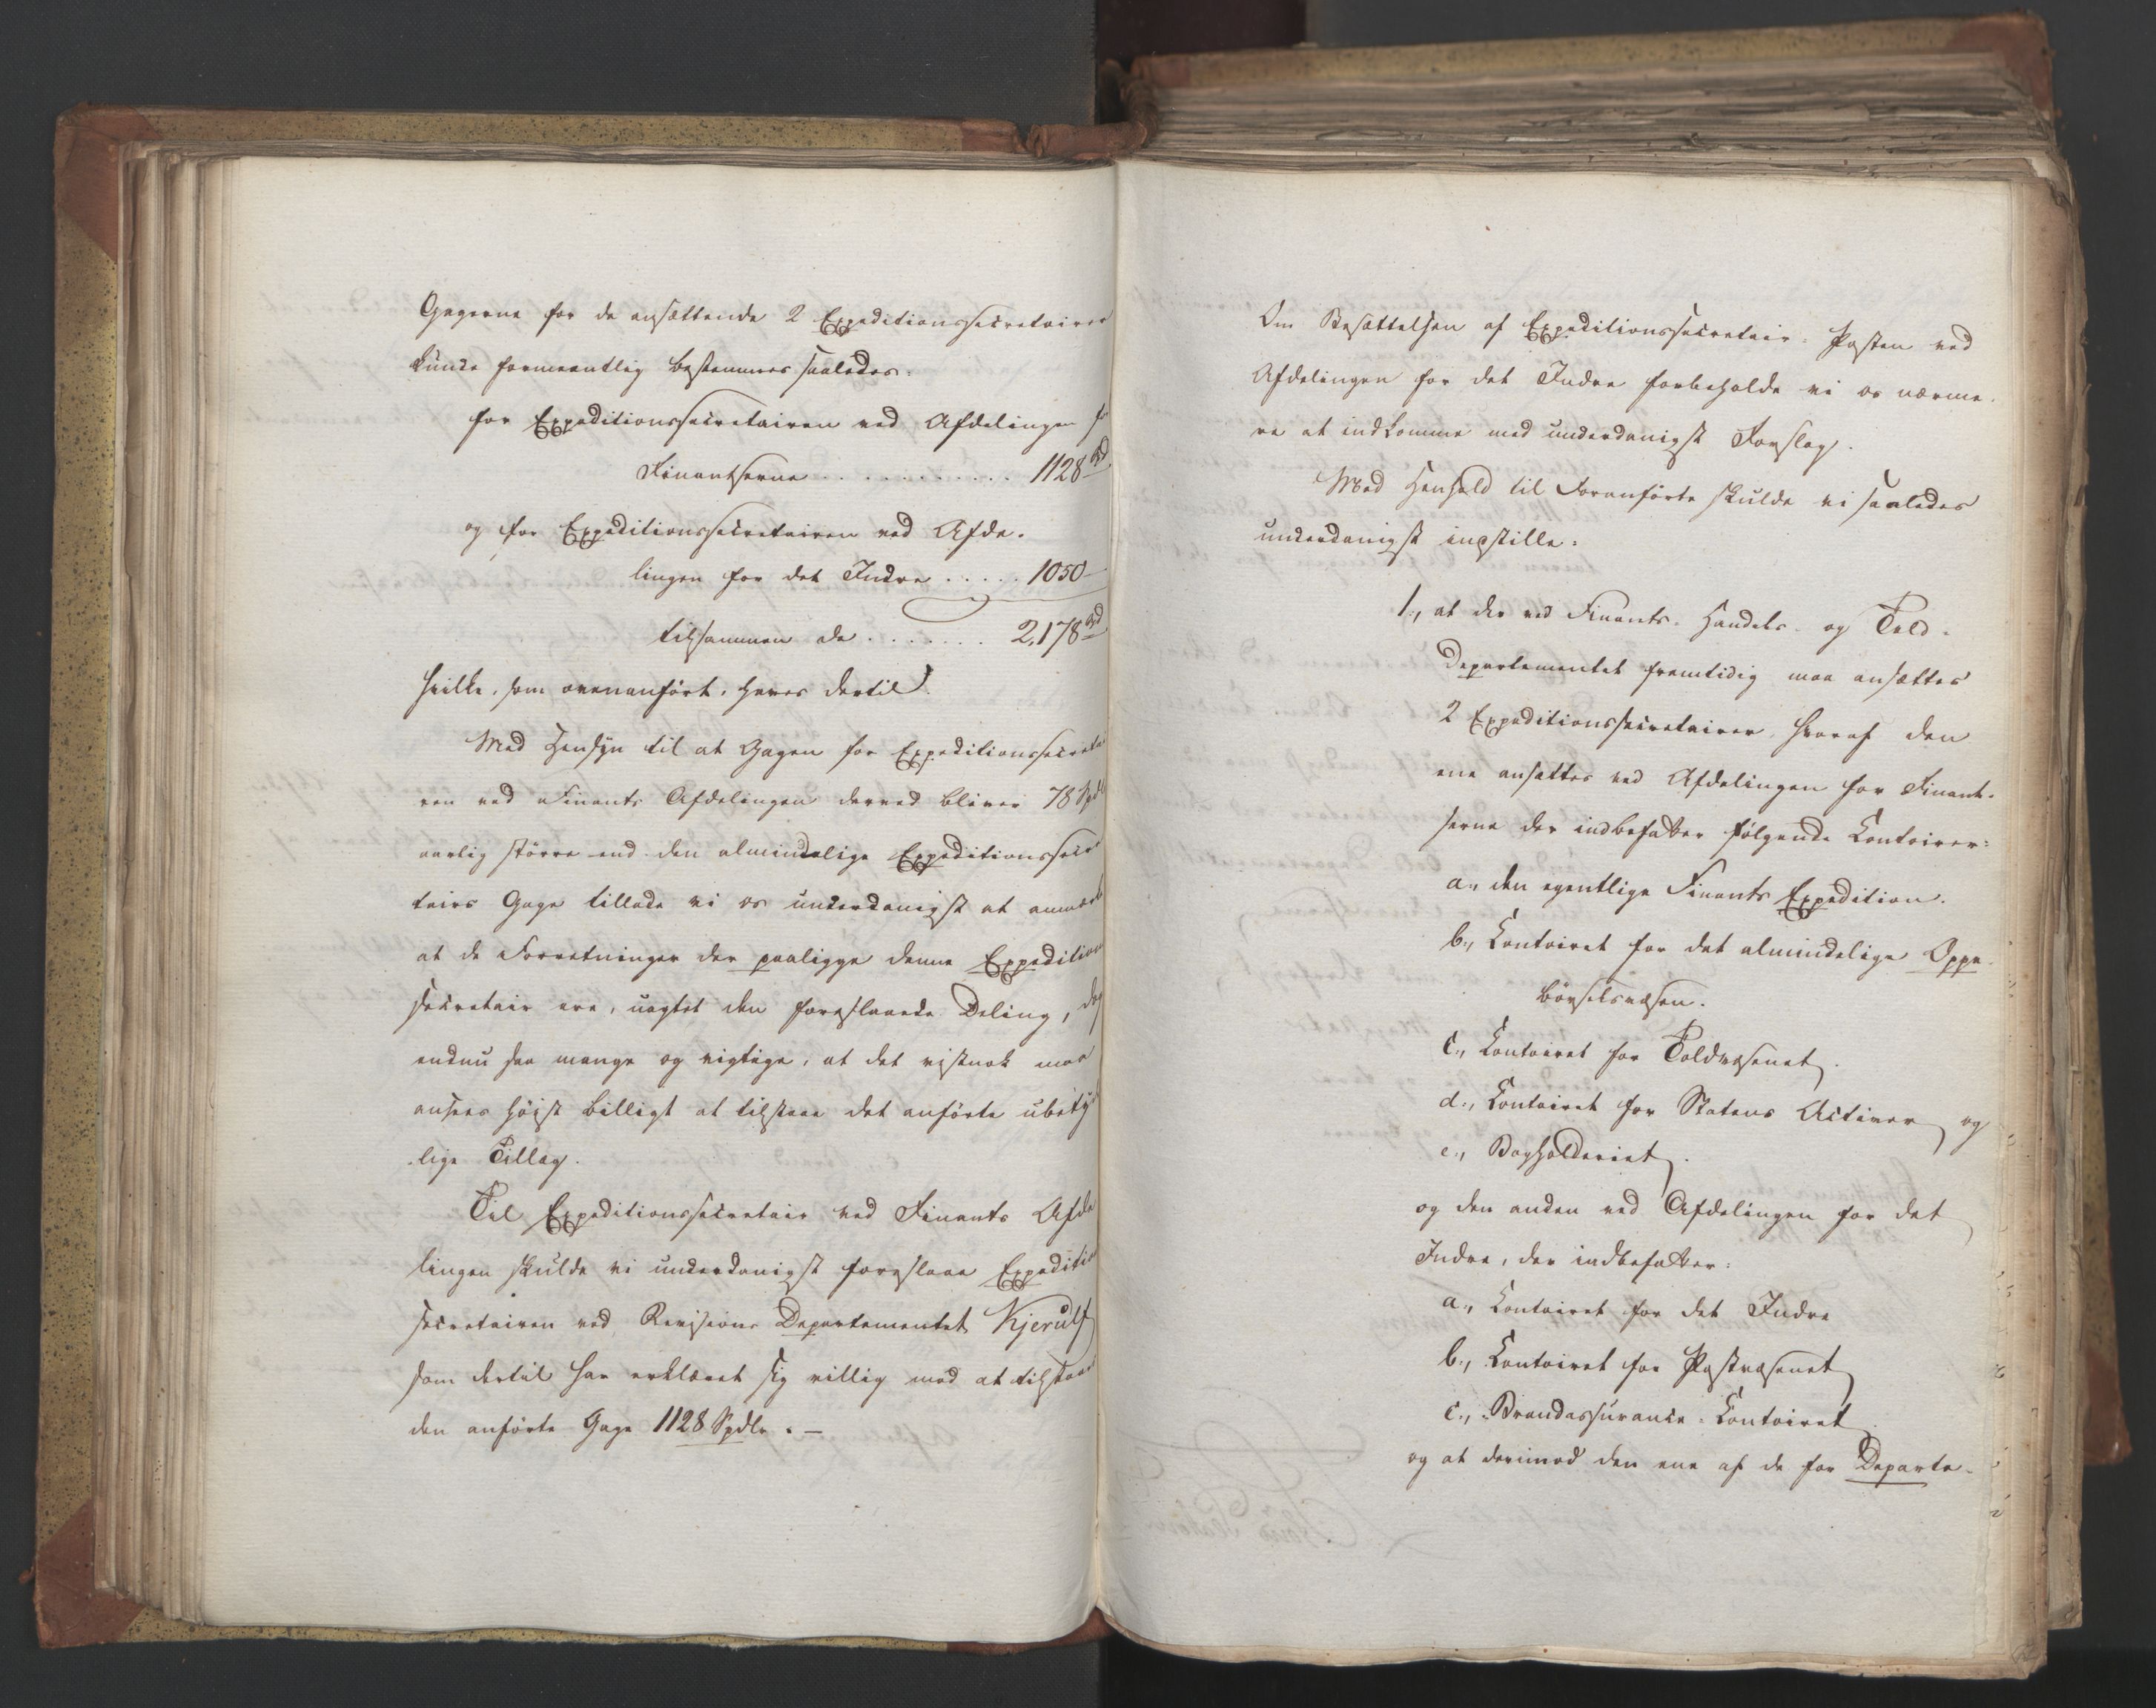 Gagerne for de ansættende 2 Expeditionssecretairer
kunde formeentlig bestemmes saaledes:
for Expeditionssecretairen ved Afdelingen for
Finantserne . . . . . . . . . . . 1128 Spd
og for Expeditionssecretairen ved Afde-
lingen for det Indre . . . . . 1050 —
tilsammen de . . . . . . . 2,178 Spd
hvilke, som ovenanført, haves dertil.
Med Hensyn til at Gagen for Expeditionssecretai
ren ved Finants Afdelingen derved bliver 78 Spdlr
aarlig större end den almindelige Expeditionssecre
tairs Gage tillade vi os underdanigst at anmærke
at de Forretninger der paaligge denne Expeditions
secretair ere, uagtet den foreslaaede Deling, dog
endnu saa mange og vigtige, at det vistnok maa
ansees höist billigt at tilstaae det anförte ubetyde
lige Tillæg.
Til Expeditionssecretair ved Finants Afde
lingen skulde vi underdanigst foreslaae Expeditions
secretairen ved Revisions Departementet Kjerulf
som dertil har erklæret sig villig mod at tilstaaes
den anförte Gage 1128 Spdlr. —
Om Besættelsen af Expeditionssecretair-Posten ved
Afdelingen for det Indre forbeholde vi os nærme-
re at indkomme med underdanigst Forslag.
Med Henhold til Foranförte skulde vi saaledes
underdanigst indstille:
1., at der ved Finants- Handels- og Told-
Departementet fremtidig maa ansættes
2 Expeditionssecretairer, hvoraf den
ene ansættes ved Afdelingen for Finant-
serne der indbefatter følgende Contoirer:
a., den egentlige Finants Expedition.
b., Contoiret for det almindelige Oppe-
börselsvæsen.
c., Contoiret for Toldvæsenet.
d., Contoiret for Statens Activer og
e., Bogholderiet.
og den anden ved Afdelingen for det
Indre, der indbefatter:
a., Contoiret for det Indre
b., Contoiret for Postvæsenet
c., Brandassurance-Contoiret
og at derimod den ene af de for Departe-